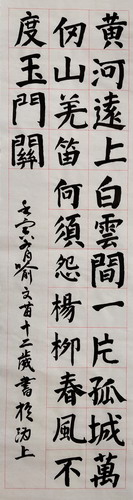 黃河遠上白雲間一片孤城萬
仞山羌笛何須怨楊柳春風不
度玉門關
壬寅月喻文十二歲書於上